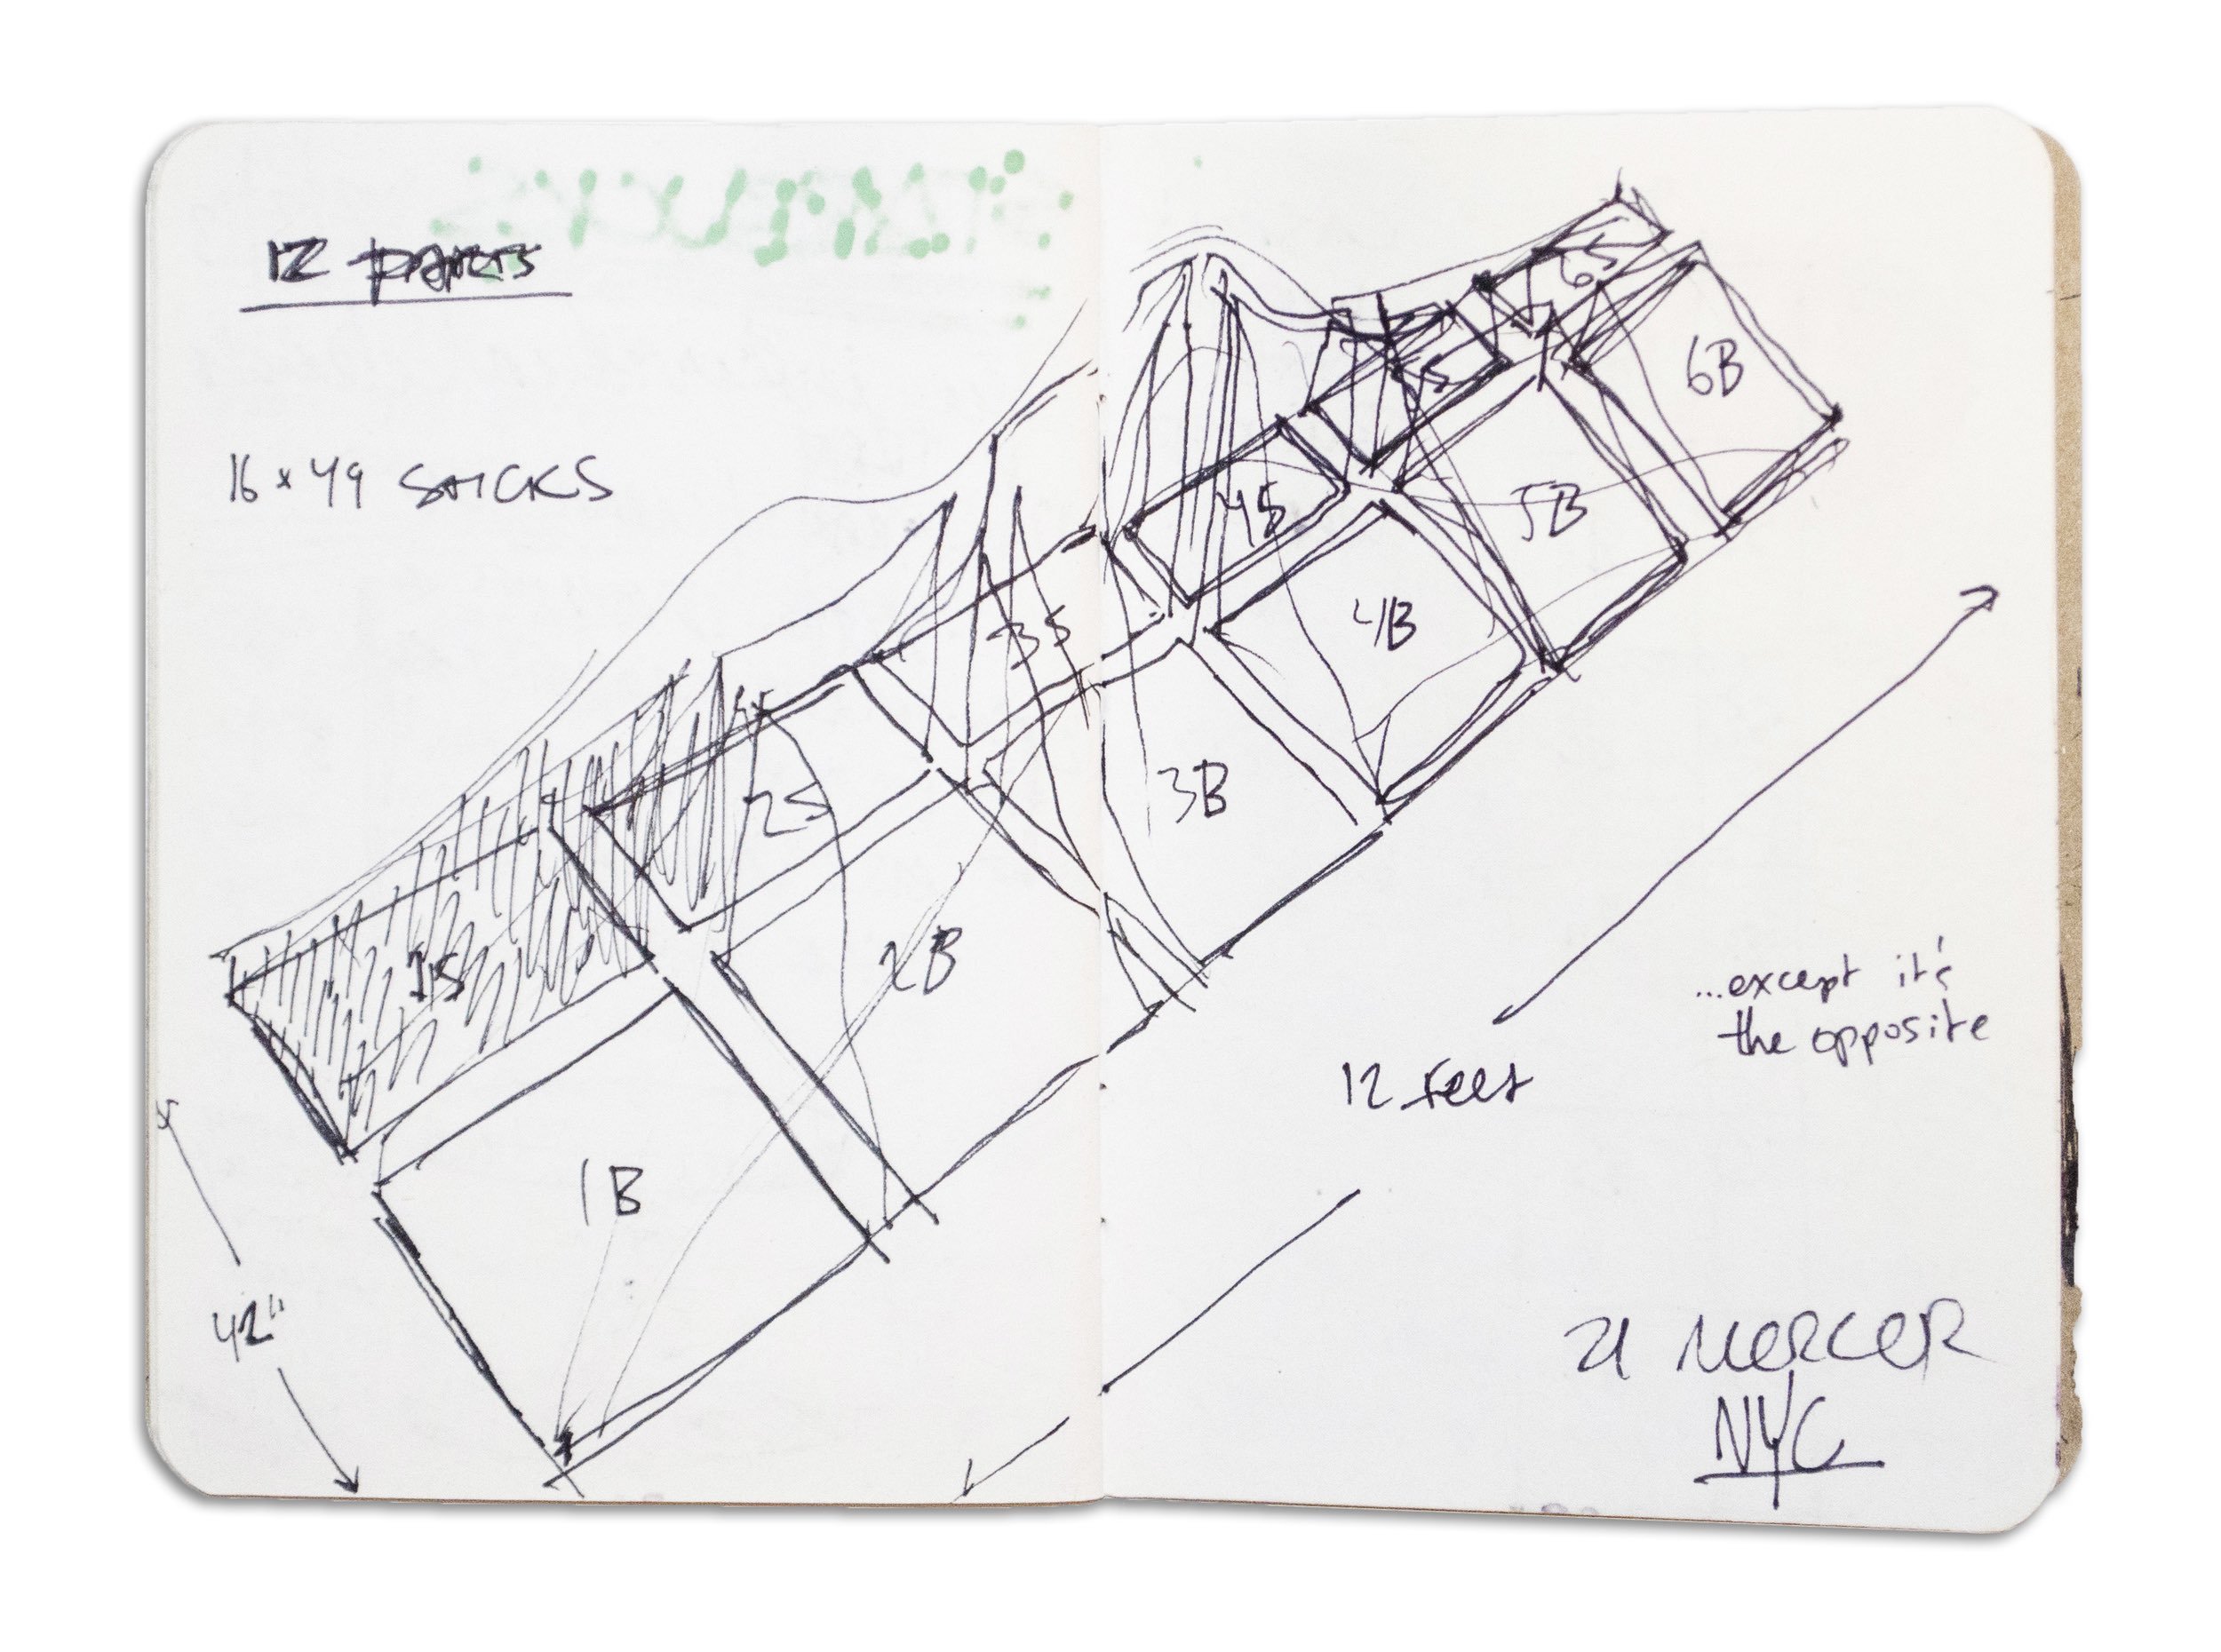 12 PARTS
16 x 49 STICKS
6S
6B
5S
5B
4S
4B
3S
3B
2S
2B
1S
1B
...except it's
the opposite
12 feet
42"
21 MERCER
NYC